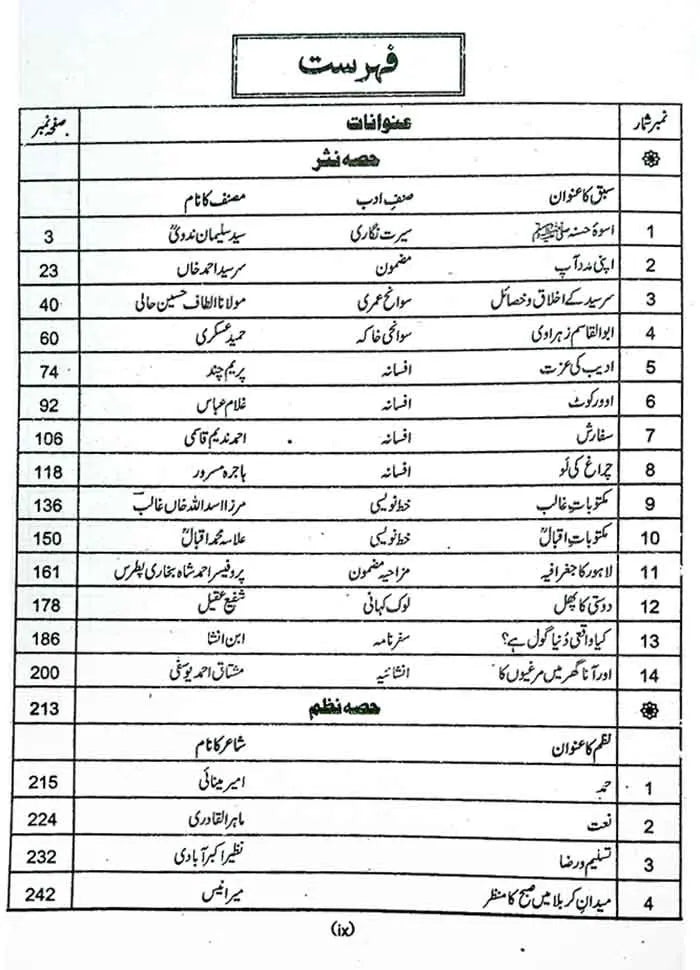 فہرست
نمبر شمار عنوانات صفحہ نمبر
حصہ نثر
سبق کا عنوان صنفِ ادب مصنف کا نام
1 اسوۂ حسنہ ﷺ سیرت نگاری سید سلیمان ندویؒ 3
2 اپنی مدد آپ مضمون سرسید احمد خاں 23
3 سرسید کے اخلاق و خصائل سوانح عمری مولانا الطاف حسین حالی 40
4 ابوالقاسم زہراوی سوانحی خاکہ حمید عسکری 60
5 ادیب کی عزت افسانہ پریم چند 74
6 اوورکوٹ افسانہ غلام عباس 92
7 سفارش افسانہ احمد ندیم قاسمی 106
8 چراغ کی لَو افسانہ ہاجرہ مسرور 118
9 مکتوباتِ غالب خط نویسی مرزا اسد اللہ خاں غالبؔ 136
10 مکتوباتِ اقبالؒ خط نویسی علامہ محمد اقبالؒ 150
11 لاہور کا جغرافیہ مزاحیہ مضمون پروفیسر احمد شاہ بخاری پطرس 161
12 دوستی کا پھل لوک کہانی شفیع عقیل 178
13 کیا واقعی دُنیا گول ہے؟ سفرنامہ ابن انشا 186
14 اور آنا گھر میں مرغیوں کا انشائیہ مشتاق احمد یوسفی 200
حصہ نظم 213
نظم کا عنوان شاعر کا نام
1 حمد امیر مینائی 215
2 نعت ماہر القادری 224
3 تسلیم و رضا نظیر اکبر آبادی 232
4 میدانِ کربلا میں صبح کا منظر میر انیس 242
(ix)